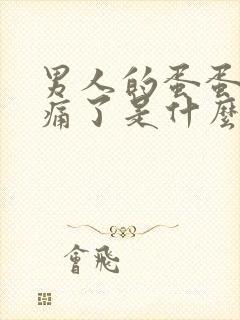 男人的蛋蛋
痛了是什麼
會飛